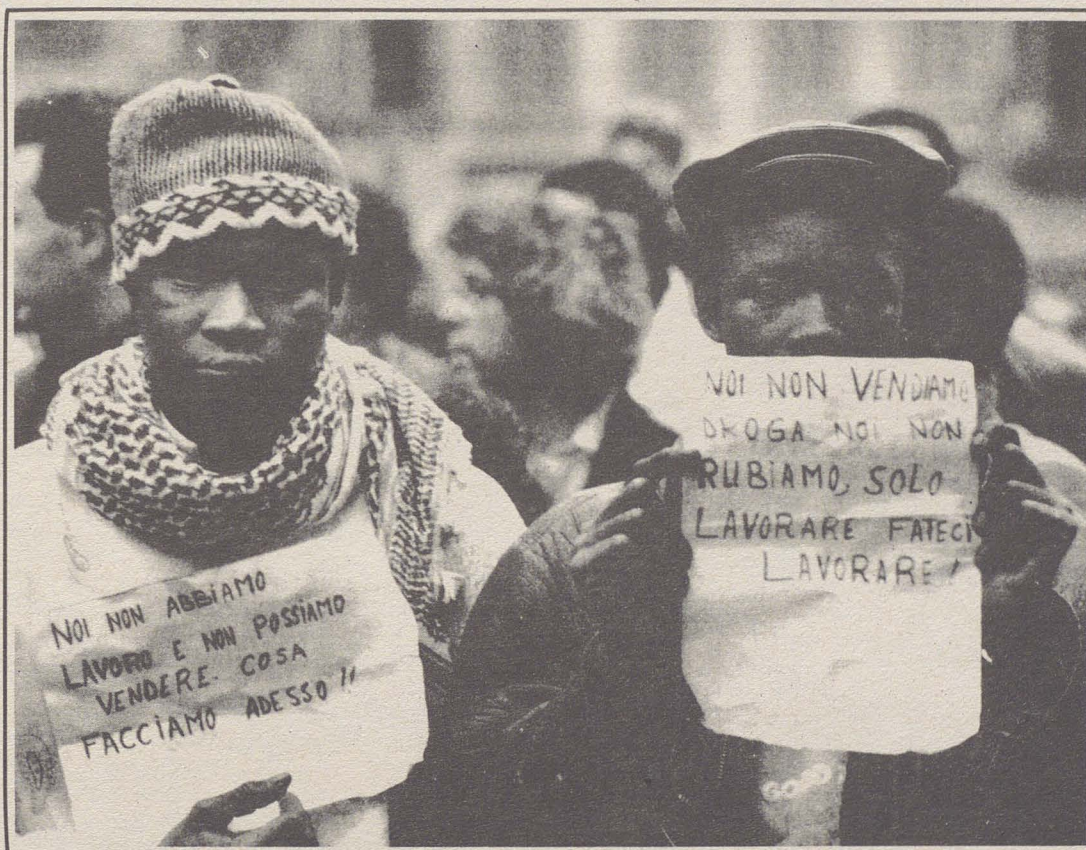 NOI NON ABBIAMO
LAVORO E NON POSSIAMO
VENDERE. COSA
FACCIAMO ADESSO !!
NOI NON VENDIAMO
DROGA NOI NON
RUBIAMO, SOLO
LAVORARE FATECI
LAVORARE !